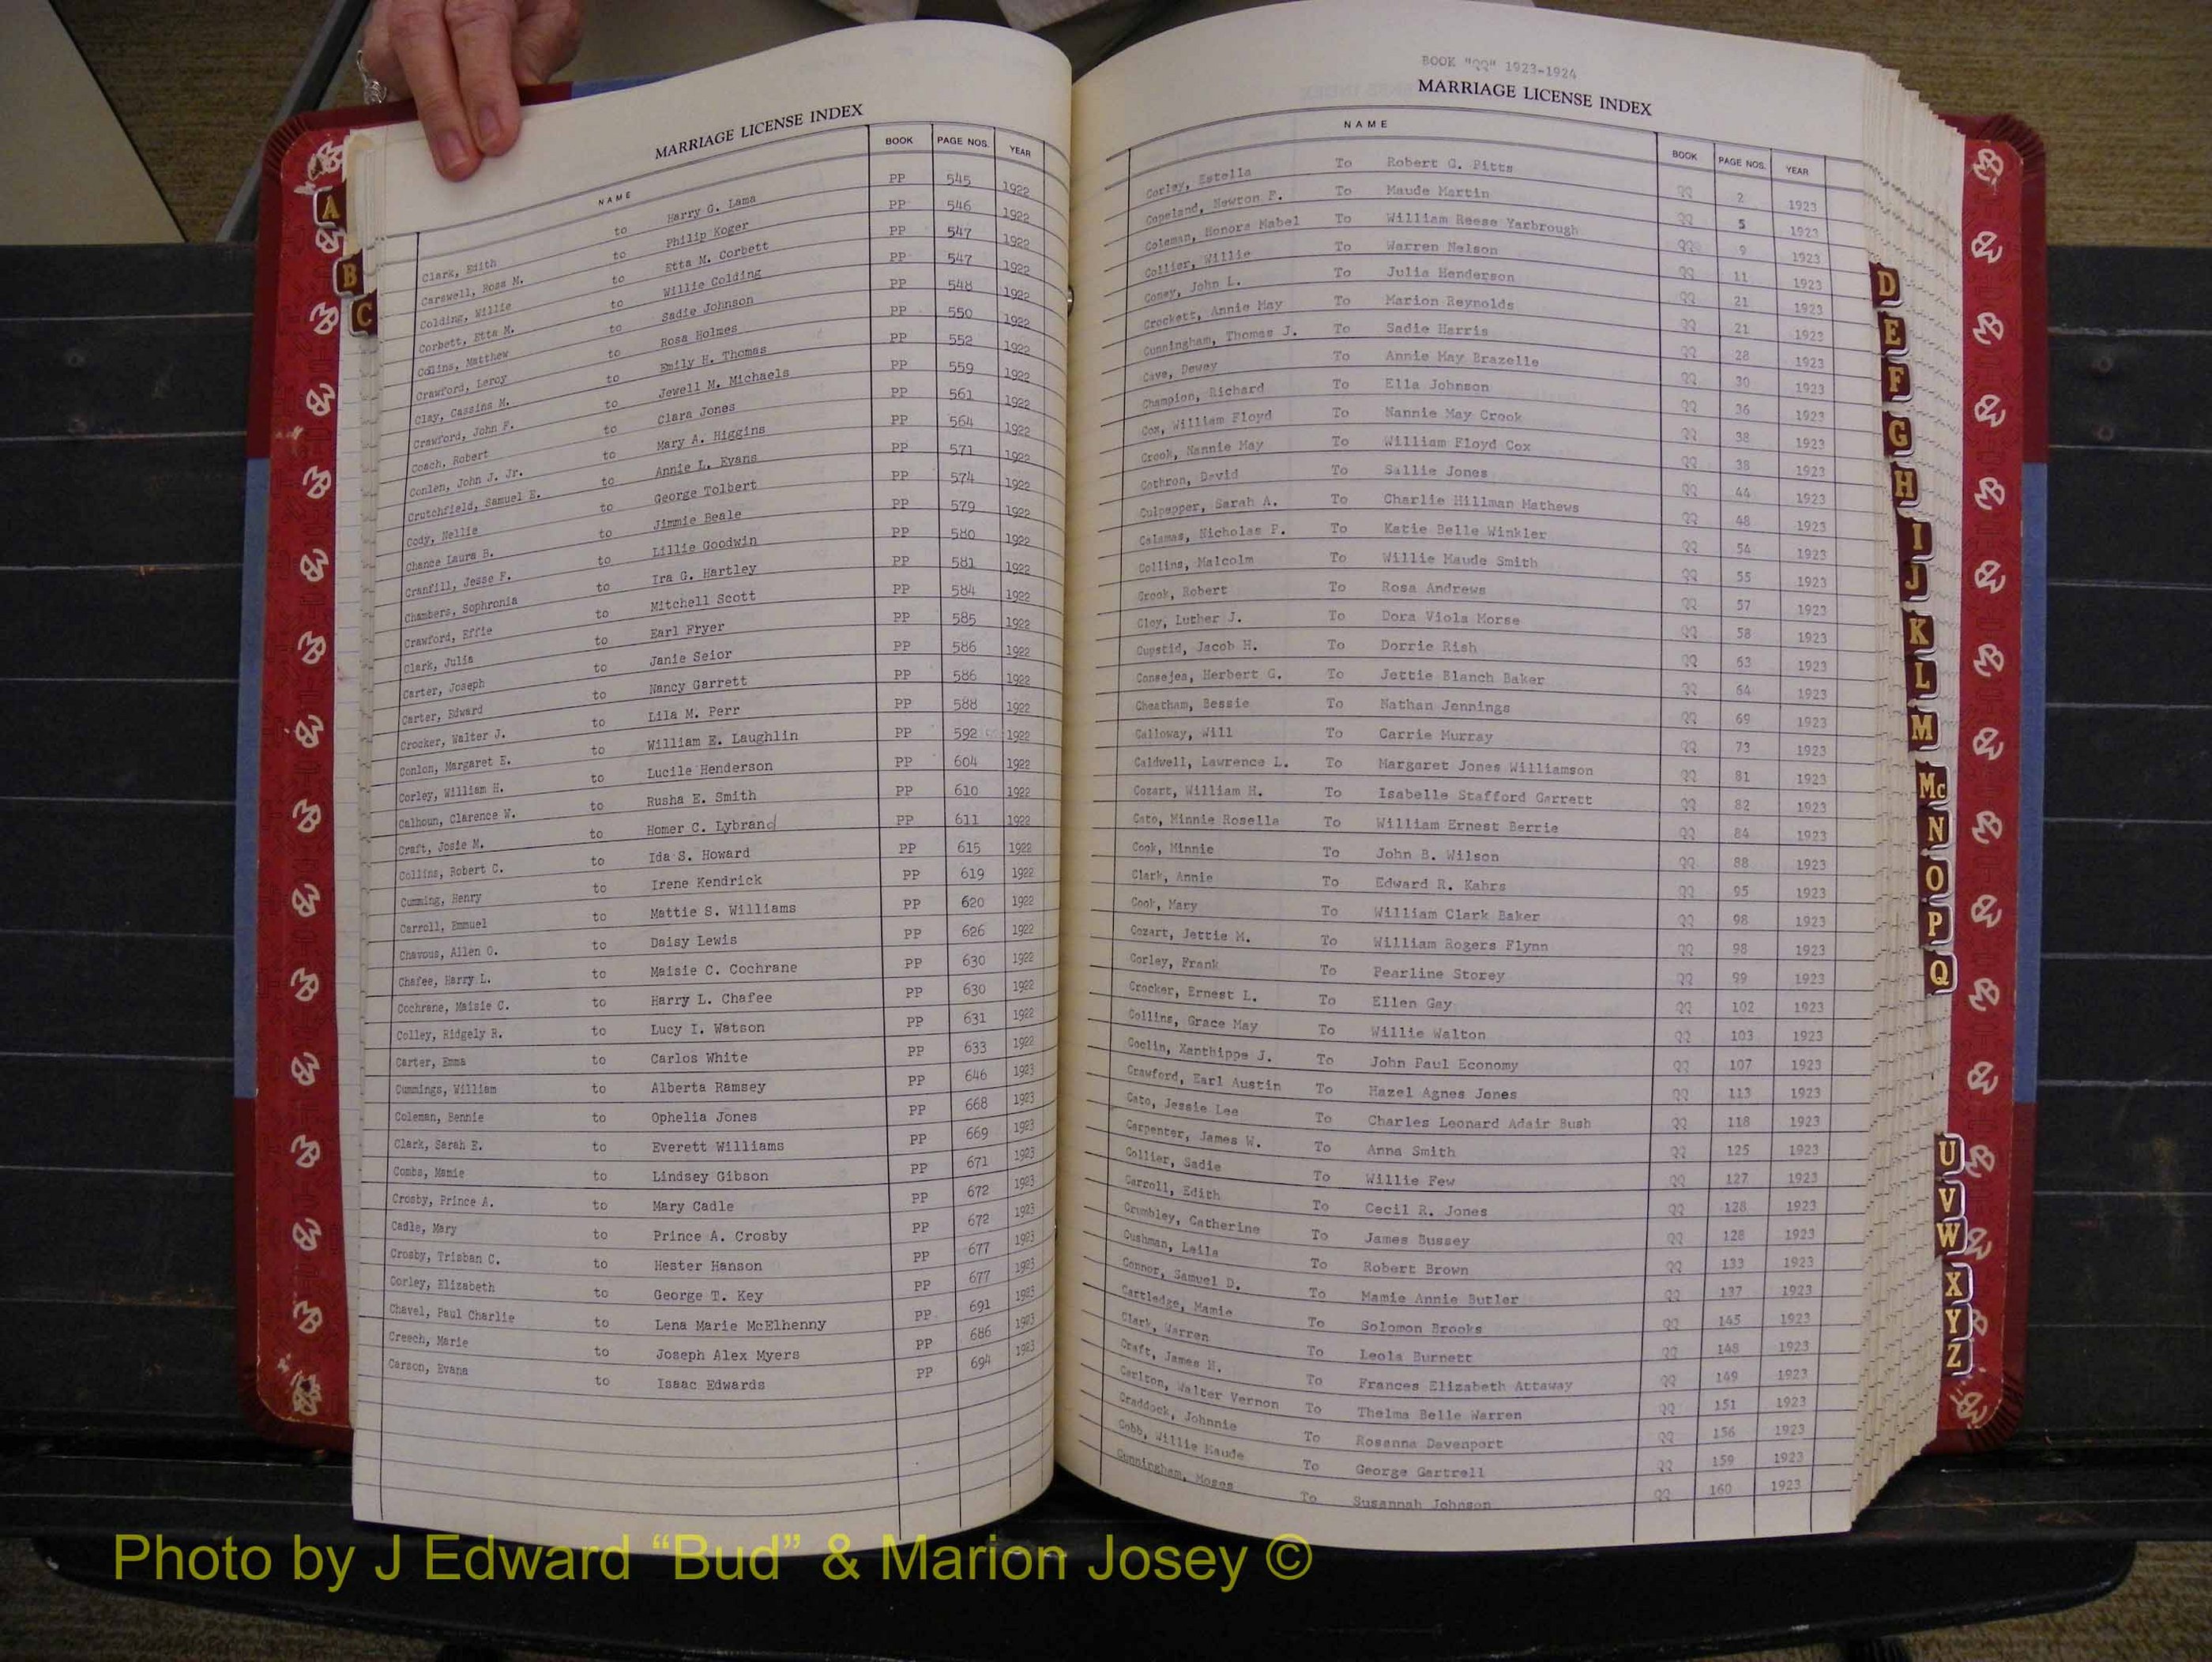 MARRIAGE LICENSE INDEX
NAME BOOK PAGE NOS. YEAR
Clark, Edith to Harry G. Lama PP 545 1922
Carswell, Rosa M. to Philip Koger PP 546 1922
Colding, Willie to Etta M. Corbett PP 547 1922
Corbett, Etta M. to Willie Colding PP 547 1922
Collins, Matthew to Sadie Johnson PP 548 1922
Crawford, Leroy to Rosa Holmes PP 550 1922
Clay, Cassius M. to Emily H. Thomas PP 552 1922
Crawford, John F. to Jewell M. Michaels PP 559 1922
Coach, Robert to Clara Jones PP 561 1922
Conlen, John J. Jr. to Mary A. Higgins PP 564 1922
Crutchfield, Samuel E. to Annie L. Evans PP 571 1922
Cody, Nellie to George Tolbert PP 574 1922
Chance Laura B. to Jimmie Beale PP 579 1922
Cranfill, Jesse F. to Lillie Goodwin PP 580 1922
Chambers, Sophronia to Ira G. Hartley PP 581 1922
Crawford, Effie to Mitchell Scott PP 584 1922
Clark, Julia to Earl Fryer PP 585 1922
Carter, Joseph to Janie Seior PP 586 1922
Carter, Edward to Nancy Garrett PP 586 1922
Crocker, Walter J. to Lila M. Perr PP 588 1922
Conlon, Margaret E. to William E. Laughlin PP 592 1922
Corley, William H. to Lucile Henderson PP 604 1922
Calhoun, Clarence W. to Rusha E. Smith PP 610 1922
Craft, Josie M. to Homer C. Lybrand PP 611 1922
Collins, Robert C. to Ida S. Howard PP 615 1922
Cumming, Henry to Irene Kendrick PP 619 1922
Carroll, Emmuel to Mattie S. Williams PP 620 1922
Chavous, Allen G. to Daisy Lewis PP 626 1922
Chafee, Harry L. to Maisie C. Cochrane PP 630 1922
Cochrane, Maisie C. to Harry L. Chafee PP 630 1922
Colley, Ridgely R. to Lucy I. Watson PP 631 1922
Carter, Emma to Carlos White PP 633 1922
Cummings, William to Alberta Ramsey PP 646 1923
Coleman, Bennie to Ophelia Jones PP 668 1923
Clark, Sarah E. to Everett Williams PP 669 1923
Combs, Mamie to Lindsey Gibson PP 671 1923
Crosby, Prince A. to Mary Cadle PP 672 1923
Cadle, Mary to Prince A. Crosby PP 672 1923
Crosby, Trisban C. to Hester Hanson PP 677 1923
Corley, Elizabeth to George T. Key PP 677 1923
Chavel, Paul Charlie to Lena Marie McElhenny PP 691 1923
Creech, Marie to Joseph Alex Myers PP 686 1923
Carson, Evana to Isaac Edwards PP 694 1923
A
B
C
BOOK "QQ" 1923-1924
MARRIAGE LICENSE INDEX
NAME BOOK PAGE NOS. YEAR
Corley, Estella To Robert G. Pitts QQ 2 1923
Copeland, Newton F. To Maude Martin QQ 5 1923
Coleman, Honora Mabel To William Reese Yarbrough QQ 9 1923
Collier, Willie To Warren Nelson QQ 11 1923
Comey, John L. To Julia Henderson QQ 21 1923
Crockett, Annie May To Marion Reynolds QQ 21 1923
Cunningham, Thomas J. To Sadie Harris QQ 28 1923
Cave, Dewey To Annie May Brazelle QQ 30 1923
Champion, Richard To Ella Johnson QQ 36 1923
Cox, William Floyd To Nannie May Crook QQ 38 1923
Crook, Nannie May To William Floyd Cox QQ 38 1923
Cothron, David To Sallie Jones QQ 44 1923
Culpepper, Sarah A. To Charlie Hillman Mathews QQ 48 1923
Calamas, Nicholas P. To Katie Belle Winkler QQ 54 1923
Collins, Malcolm To Willie Maude Smith QQ 55 1923
Crook, Robert To Rosa Andrews QQ 57 1923
Cloy, Luther J. To Dora Viola Morse QQ 58 1923
Cupstid, Jacob H. To Dorrie Rish QQ 63 1923
Consejea, Herbert G. To Jettie Blanch Baker QQ 64 1923
Cheatham, Bessie To Nathan Jennings QQ 69 1923
Calloway, Will To Carrie Murray QQ 73 1923
Caldwell, Lawrence L. To Margaret Jones Williamson QQ 81 1923
Cozart, William H. To Isabelle Stafford Garrett QQ 82 1923
Cato, Minnie Rosella To William Ernest Berrie QQ 84 1923
Cook, Minnie To John B. Wilson QQ 88 1923
Clark, Annie To Edward R. Kahrs QQ 95 1923
Cook, Mary To William Clark Baker QQ 98 1923
Cozart, Jettie M. To William Rogers Flynn QQ 98 1923
Corley, Frank To Pearline Storey QQ 99 1923
Crocker, Ernest L. To Ellen Gay QQ 102 1923
Collins, Grace May To Willie Walton QQ 103 1923
Coclin, Xanthippe J. To John Paul Economy QQ 107 1923
Crawford, Earl Austin To Hazel Agnes Jones QQ 113 1923
Cato, Jessie Lee To Charles Leonard Adair Bush QQ 118 1923
Carpenter, James W. To Anna Smith QQ 125 1923
Collier, Sadie To Willie Few QQ 127 1923
Carroll, Edith To Cecil R. Jones QQ 128 1923
Crumbley, Catherine To James Bussey QQ 128 1923
Cushman, Leila To Robert Brown QQ 133 1923
Connor, Samuel D. To Mamie Annie Butler QQ 137 1923
Cartledge, Mamie To Solomon Brooks QQ 145 1923
Clark, Warren To Leola Burnett QQ 148 1923
Craft, James H. To Frances Elizabeth Attaway QQ 149 1923
Carlton, Walter Vernon To Thelma Belle Warren QQ 151 1923
Craddock, Johnnie To Rosanna Davenport QQ 156 1923
Cobb, Willie Maude To George Gartrell QQ 159 1923
Cunningham, Moses To Susannah Johnson QQ 160 1923
D
E
F
G
H
I
J
K
L
M
Mc
N
O
P
Q
U
V
W
X
Y
Z
Photo by J Edward “Bud” & Marion Josey ©